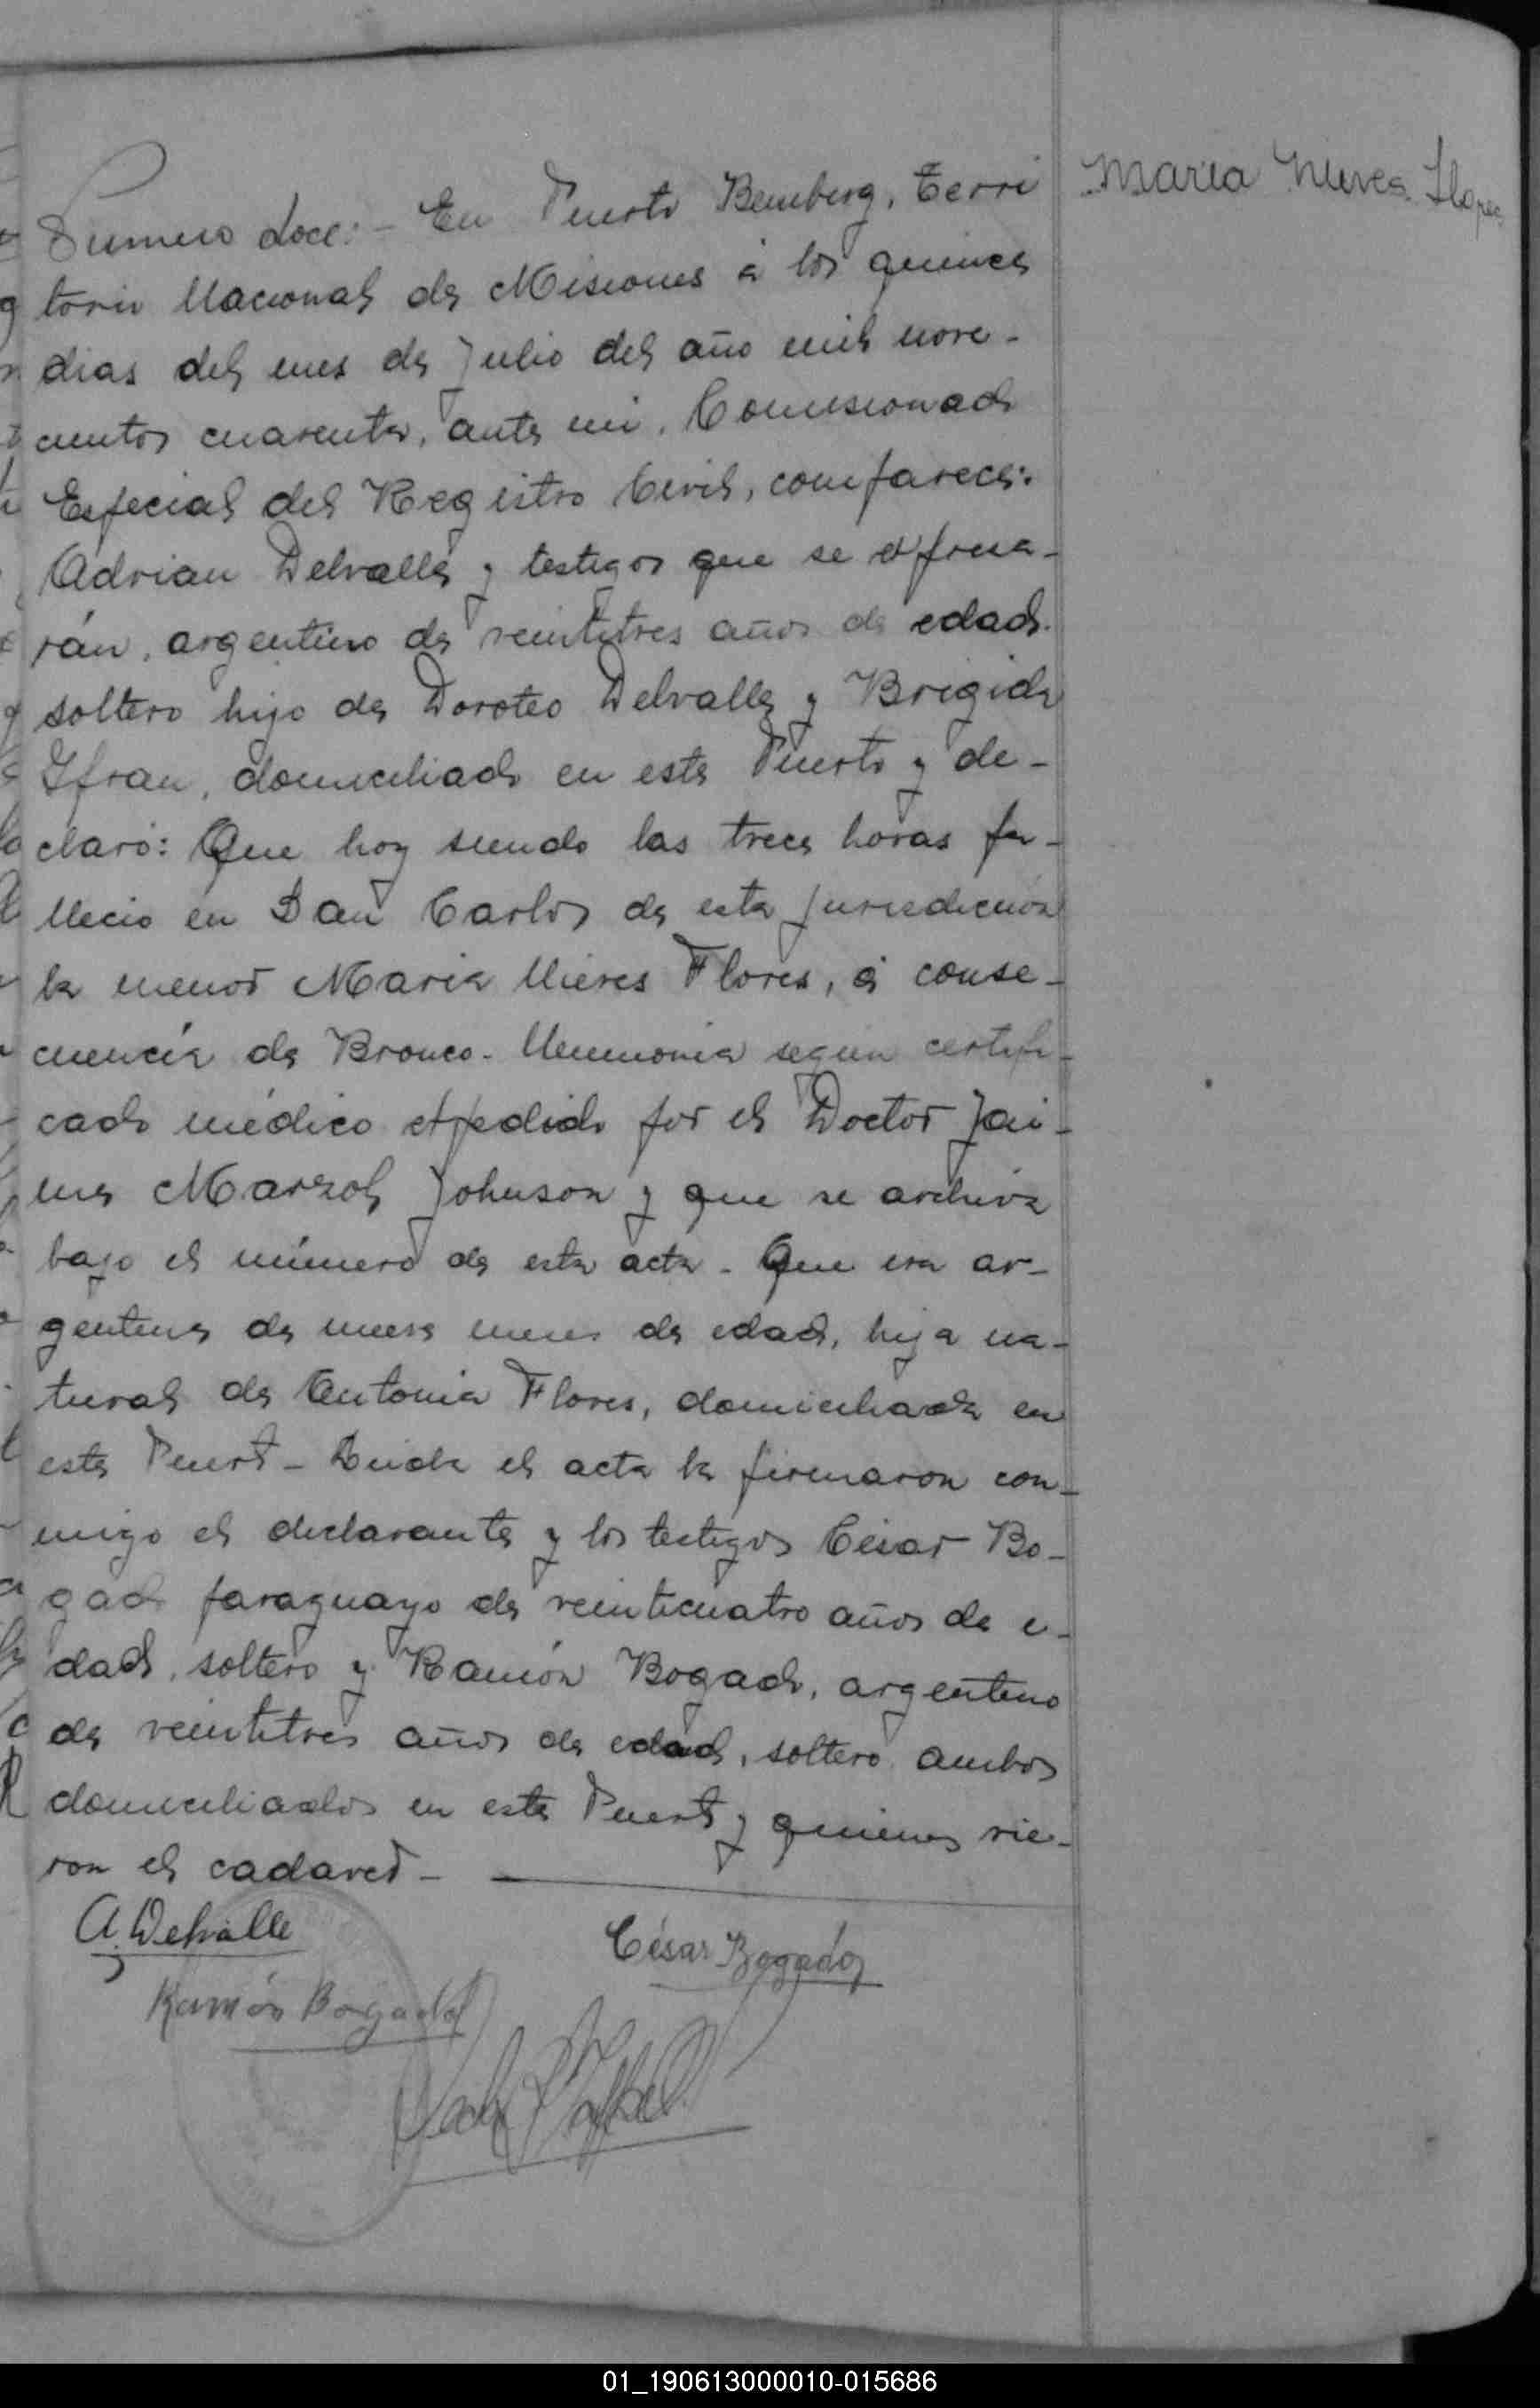 Maria Nieves Flores
Numero doce:- En Puerto Bemberg, Terri
torio Nacional de Misiones á los quince
dias del mes de Julio del año mil nove-
cientos cuarenta, ante mi, Comisionado
Especial del Registro Civil, comparece:
Adrian Delvalle y testigos que se expresa-
rán, argentino de veintitres años de edad.
soltero hijo de Doroteo Delvalle y Brigida
Ifran, domiciliado en este Puerto y de-
claró: Que hoy siendo las trece horas fa-
llecio en San Carlos de esta jurisdicción
la menor Maria Nieves Flores, á conse-
cuencia de Bronco-Neumonia segun certifi-
cado médico expedido por el Doctor Jai-
me Marzol Johnson y que se archiva
bajo el número de esta acta. Que era ar-
gentina de nueve meses de edad, hija na-
tural de Antonia Flores, domiciliada en
este Puerto - Leida el acta la firmaron con-
migo el declarante y los testigos César Bo-
gado paraguayo de veinticuatro años de e-
dad, soltero y Ramón Bogado, argentino
de veintitres años de edad, soltero, ambos
domiciliados en este Puerto y quienes vie-
ron el cadaver -
A. Delvalle
César Bogado
Ramón Bogado
01_190613000010-015686